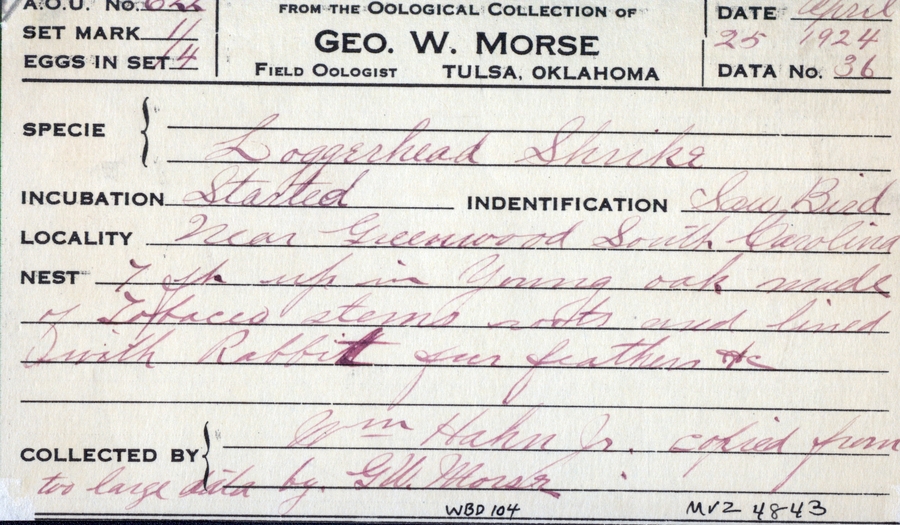 A.O.U. No. 622
FROM THE OOLOGICAL COLLECTION OF
DATE April
SET MARK 11
GEO. W. MORSE
25 1924
EGGS IN SET 4
FIELD OOLOGIST TULSA, OKLAHOMA
DATA No. 36
SPECIE
Loggerhead Shrike
INCUBATION Started INDENTIFICATION Saw Bird
LOCALITY Near Greenwood South Carolina
NEST 7 ft up in Young oak made
of Tobacco stems roots and lined
with Rabbit fur feathers etc
Wm Hahn Jr. copied from
COLLECTED BY
too large data by. G.W. Morse
WBD 104 MVZ 4843